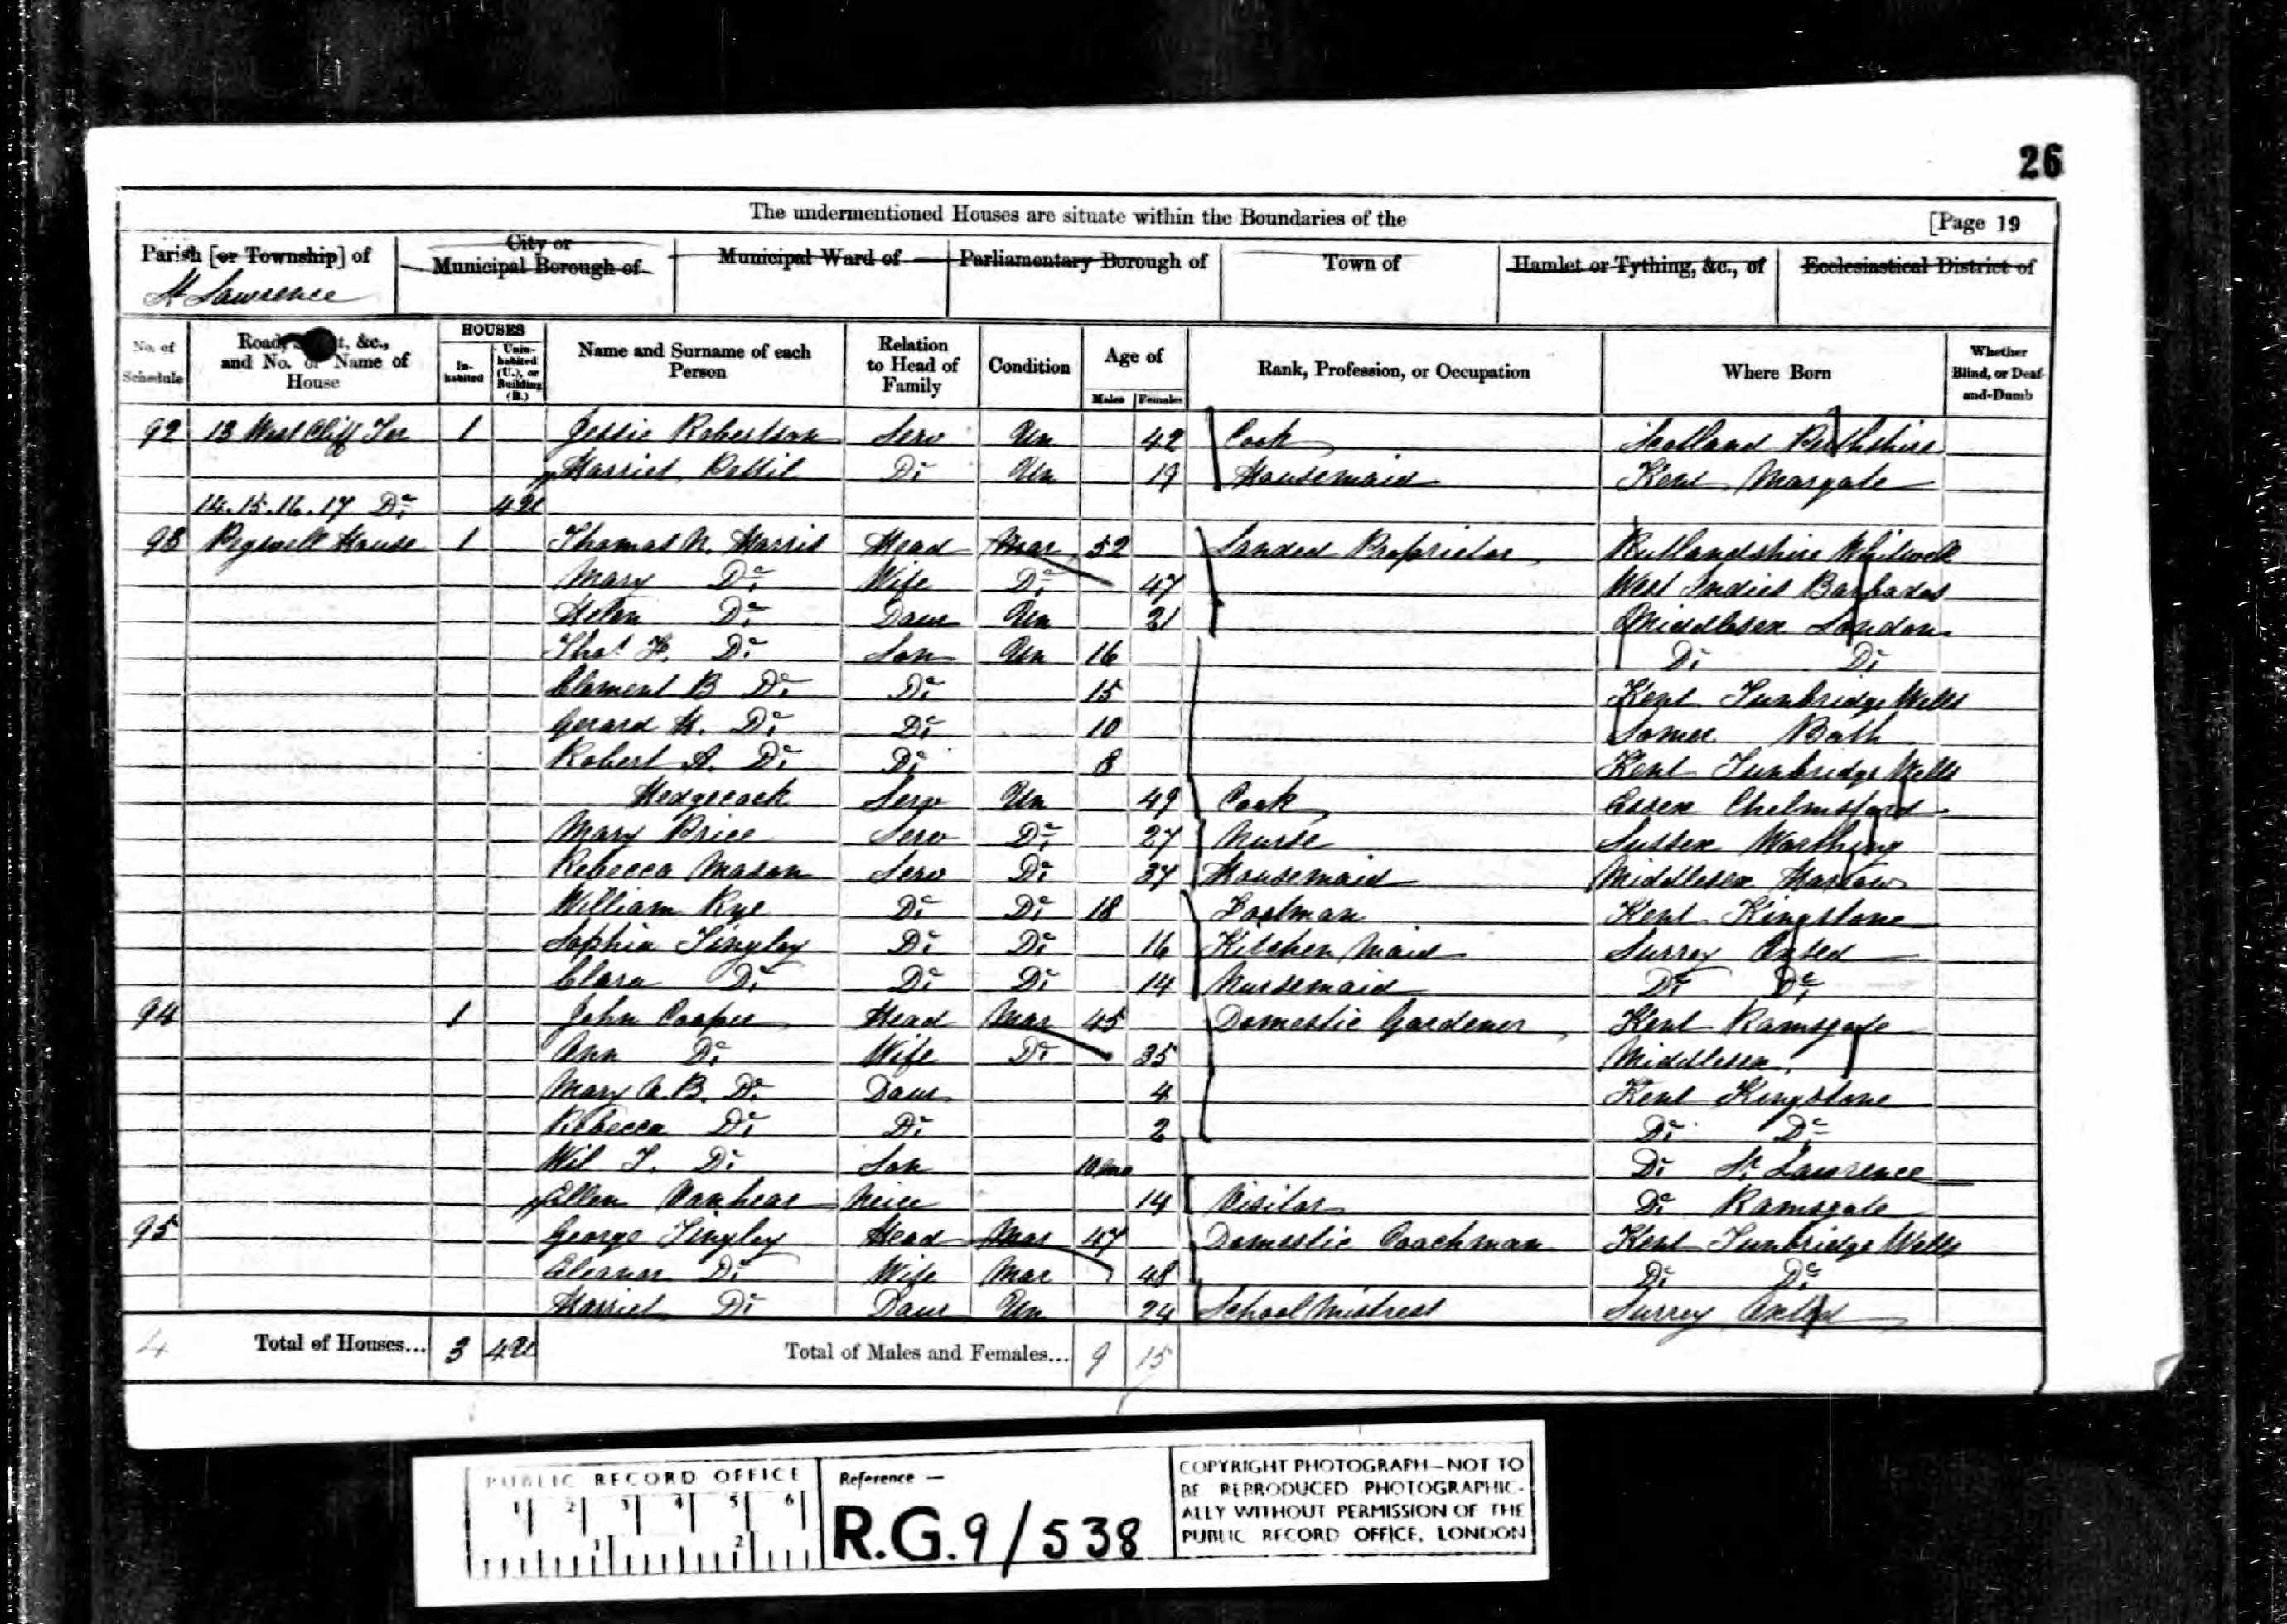 26
The undermentioned Houses are situate within the Boundaries of the [Page 19
Parish [or Township] of City or Municipal Borough of Municipal Ward of Parliamentary Borough of Town of Hamlet or Tything, &c., of Ecclesiastical District of
St Lawrence
No. of Schedule Road, &c., and No. or Name of House HOUSES In-habited Unin-habited (U.), or Building (B.) Name and Surname of each Person Relation to Head of Family Condition Age of Males Females Rank, Profession, or Occupation Where Born Whether Blind, or Deaf-and-Dumb
92 13 West Cliff Ter 1 Jessie Robertson Serv Un 42 Cook Scotland Perthshire
Harriet Pettit Do Un 19 Housemaid Kent Margate
14.15.16.17 Do 4U
93 Pegwell House 1 Thomas N. Harris Head Mar 52 Landed Proprietor Rutlandshire Whitwell
Mary Do Wife Do 47 West Indies Barbados
Helen Do Daur Un 21 Middlesex London
Thos F. Do Son Un 16 Do Do
Clement B Do Do 15 Kent Tunbridge Wells
Gerard H. Do Do 10 Somer Bath
Robert A. Do Do 8 Kent Tunbridge Wells
Hedgecock Serv Un 49 Cook Essex Chelmsford
Mary Price Serv Do 27 Nurse Sussex Worthing
Rebecca Mason Serv Do 37 Housemaid Middlesex Harrow
William Rye Do Do 18 Footman Kent Kingstone
Sophia Tingley Do Do 16 Kitchen Maid Surrey Oxted
Clara Do Do Do 14 Nursemaid Do Do
94 1 John Cooper Head Mar 45 Domestic Gardener Kent Ramsgate
Ann Do Wife Do 35 Middlesex
Mary A. B. Do Daur 4 Kent Kingstone
Rebecca Do Do 2 Do Do
Wil T. Do Son 10 mo Do St Lawrence
Ellen Vanhear Neice 14 Visitor Do Ramsgate
95 George Tingley Head Mar 47 Domestic Coachman Kent Tunbridge Wells
Eleanor Do Wife Mar 48 Do Do
Harriet Do Daur Un 24 School Mistress Surrey Oxted
4 Total of Houses... 3 4U Total of Males and Females... 9 15
PUBLIC RECORD OFFICE
1 2 3 4 5 6
1 2
Reference —
R.G.9/538
COPYRIGHT PHOTOGRAPH—NOT TO
BE REPRODUCED PHOTOGRAPHIC-
ALLY WITHOUT PERMISSION OF THE
PUBLIC RECORD OFFICE, LONDON